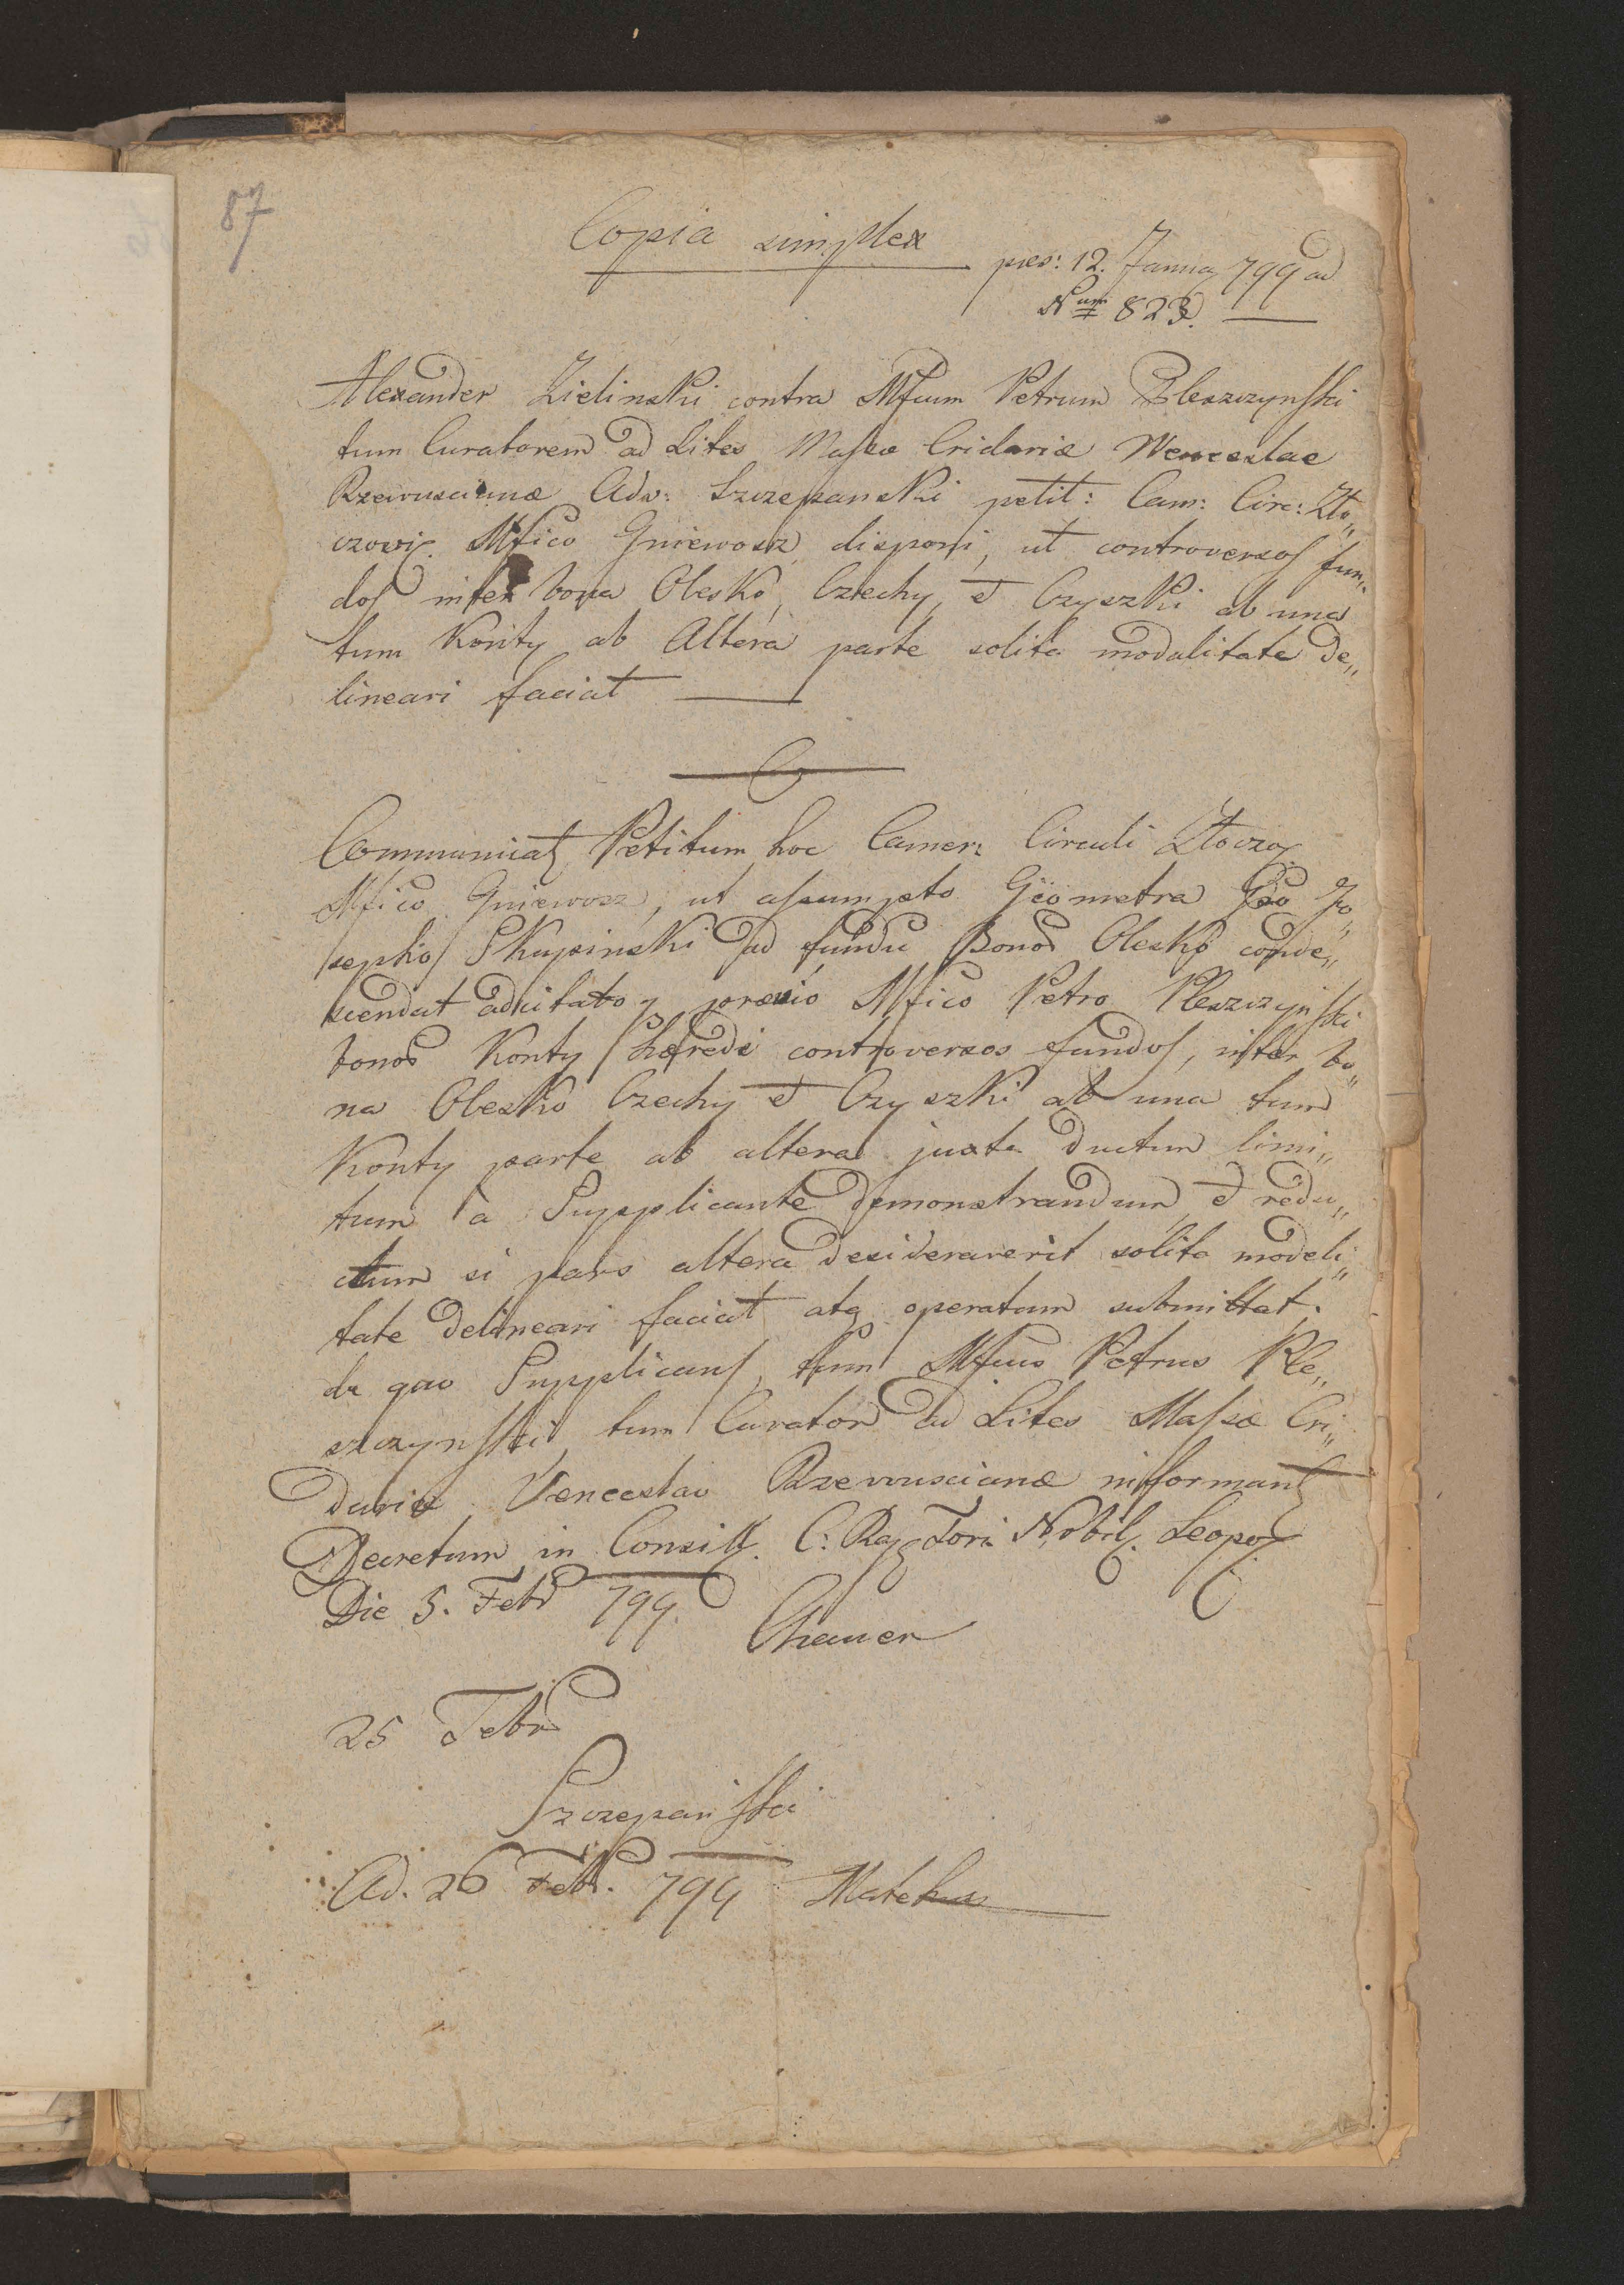 87
Copia simplex
pres: 12. Januar 799 ad
Num 823.
Alexander Zielinski contra Mfcum Petrum Pleszczynski
tum Curatorem ad Lites Massæ Cridariæ Wenceslae
Rzewuscianæ Adv: Szczepanski petit: Cam: Circ: Zło„
czovi. Mfico Gniewosz disponi, ut controversos fun„
dos inter bona Olesko, Czechy, et Czyszki ab una
tum Konty ab Altera parte solita modalitate de„
lineari faciat
Communicat Petitum hoc Camer: Circuli Złoczo.
Mfico Gniewosz, ut assumpto Geometra Gso Jo„
sepho Skupinski ad fundū Bonoz Olesko conde„
scendat adcitatoq prævio Mfico Petro Pleszczynski
bonoz Konty hæredi controversos fundos, inter bo„
na Olesko Czechy et Czyszki ab una tum
Konty parte ab altera juxta ductum limi„
tum a Supplicante demonstrandum, et redu„
ctum si pars altera desideraverit solita modali„
tate delineari faciat atq operatum submittat.
de quo Supplicans, tum Mfcus Petrus Ple„
szczynski, tum Curator ad Lites Massæ Cri„
dariæ Venceslao Rzewuscianæ informant
Decretum in Consill. C: Rag Fori Nobil. Leopo.
Die 5. Febr 799.
Chauer
25 Febr
Szczepanski
Ad. 26 Febr. 799